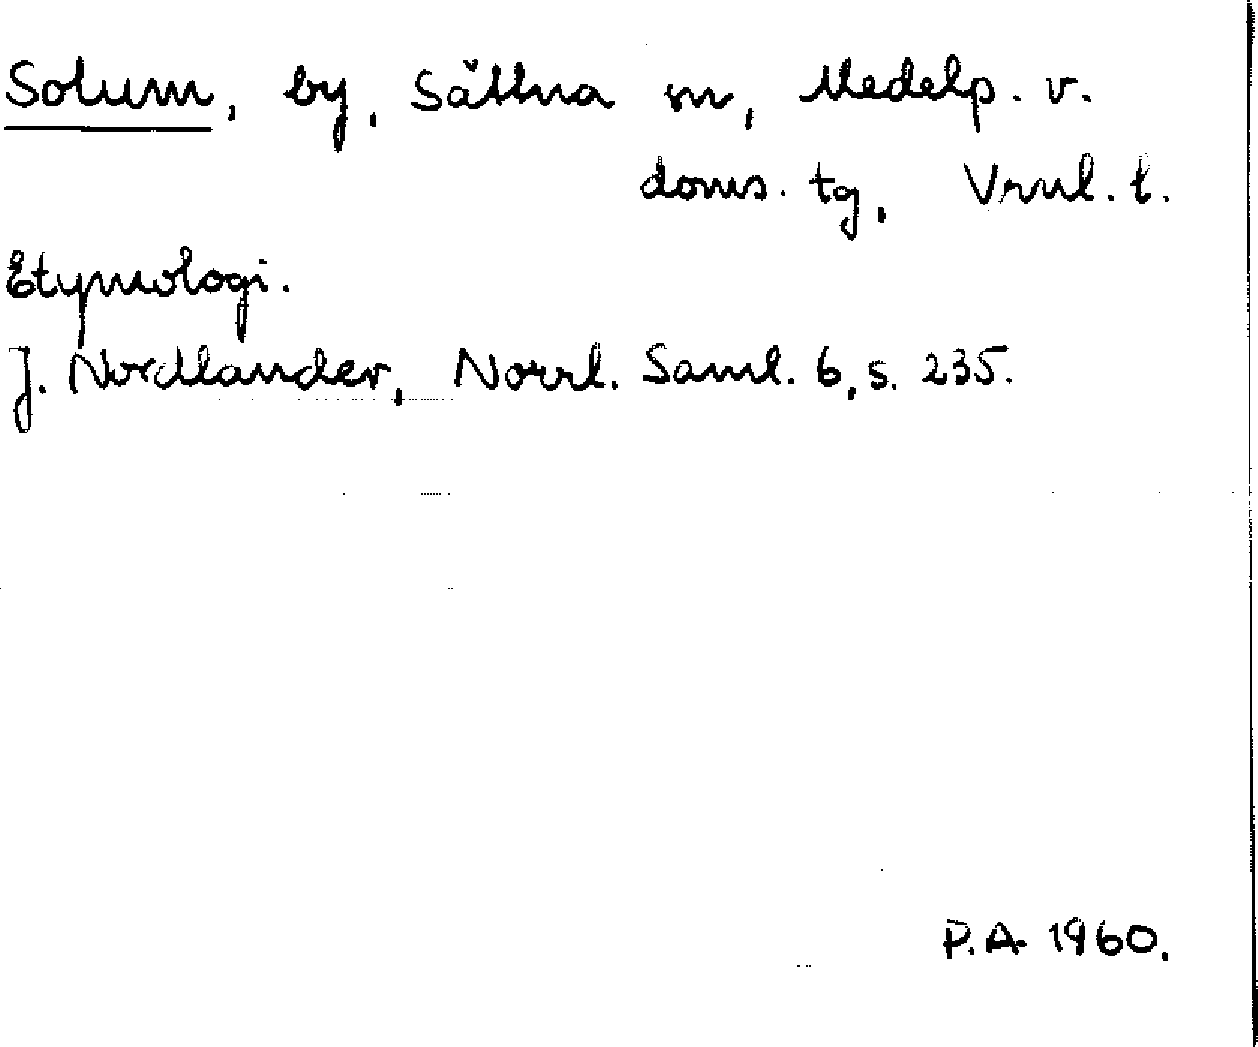 Solum, by, Sättna sn, Medelp. v.
doms. tg, Vrnl. l.
Etymologi.
J. Nordlander, Norrl. Saml. 6, s. 235.
P.A. 1960.